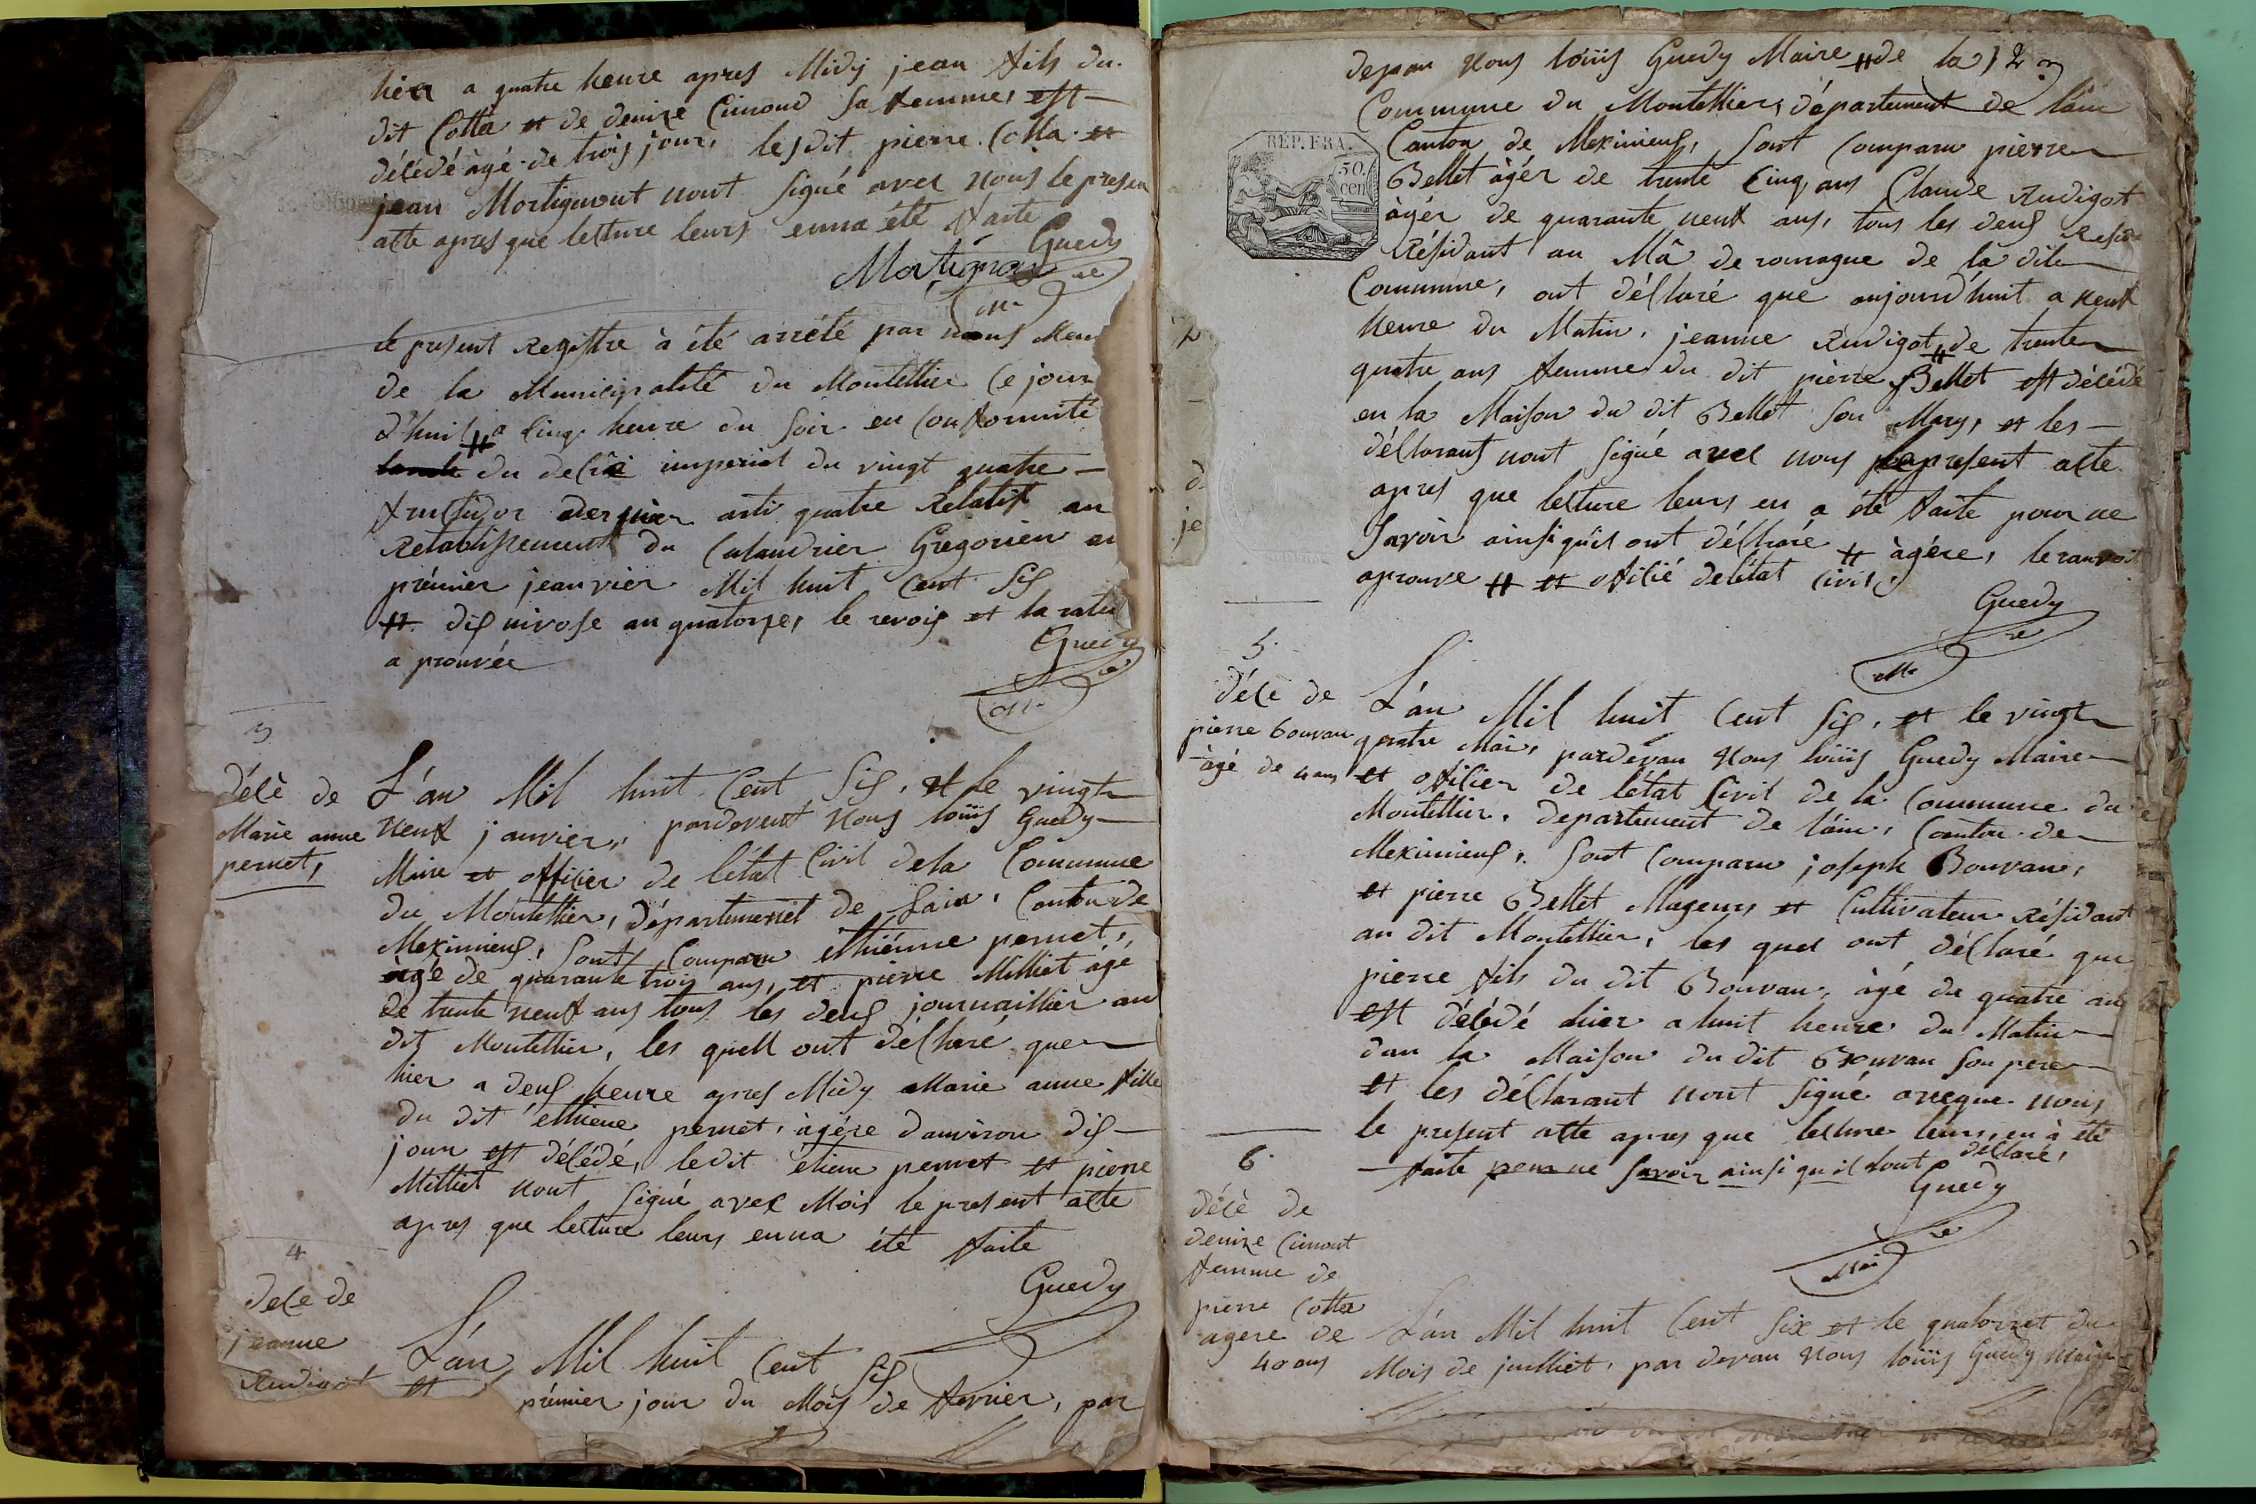 hier a quatre heure apres Midy jean fils du
dit Cotta et de denize Cimond sa femme, est
décédé âgé de trois jour, lesdit pierre Cotta et
jean Mortignont nont signé avec nous le presen
atte apres que letture leurs enna été faite
Guedy
Martignon
re
m
le present Registre à été arrété par nous Mair
de la Municipalité du Montellier ce jour
d'huit # a cinq heure du soir en conformité
du decrêt imperial du vingt quatre
fructidor dernier anti quatre Relatif au
Retablissement du Calandrier Gregorien au
prémier jeanvier Mil huit Cent Six
# dix nivose an quatorze, le renvois et la ratu
a prouvée
Guedy
re
m
3
décè de
Marie anne
pernet,
L'an Mil huit Cent Six, et le vingt
neuf janvier, pardevent nous loüis Guedy
Maire et officier de l'état Civil dela Commune
du Montellier, département de Lain, Canton de
Meximieux, sont Comparu ethiénne pernet,
âgé de quarante trois ans, et pierre Milliet âgé
de trente neuf ans tous les deux journaillier au
dit Montellier, les quell ont déclaré que
hier a deux heure apres Midy Marie anne fille
du dit ethiene pernet, âgére d'anviron dix
jour est décédé, ledit etiene pernet et pierre
Milliet nont signé avec Mois le present atte
apres que letture leurs enna été faite
Guedy
4
decè de
jeanne
Rudigot
L'an Mil huit Cent Six
et
prémier jour du Mois de fevrier, par
devan nous loüis Guedy Maire # de la
2
Commune du Montellier, département de l'ain
RÉP. FRA.
50.
cen
Canton de Meximieux, sont Comparu pierre
Bellet âgér de trente cinq ans Claude Rudigot
âgér de quarante neuf ans, tous les deux
Résidant au Mâ de romagne de la dite
Commune, ont déclaré que aujourd'huit a neuf
heure du Matin, jeanne Rudigot, # de trente
quatre ans femme du dit pierre Bellet est décédé
en la Maison du dit Bellet son Mary, et les
déclarant nont signé avec nous le present atte
apres que letture leurs en a été faite pour ne
savoir ainsi qu'il ont déclaré # âgére, le ranvoi
aprouve # et oficié deletat civil,
Guedy
re
m
5
décè de
pierre bouvan
âgé de 4 ans
L'an Mil huit Cent Six, et le vingt
quatre Mai, pardevan nous loüis Guedy Maire
et oficier de l'état Civil de la Commune du
Montellier, departement de l'ain, Canton de
Meximieux, sont Comparu joseph Bouvan,
et pierre Bellet Mageurs et Cultivateur Résidant
au dit Montellier, les quel ont déclaré que
pierre fils du dit Bouvan, âgé du quatre an
est décédé hier a huit heure du Matin
dan la Maison du dit Bouvan son pere
et les déclarant nont signé aveque nous
le present atte apres que letture leurs, en à été
faite pour ne savoir ainsi qu il lont déclaré,
Guedy
re
Mai
6
décè de
denize Cimont
femme de
pierre Cotta
agere de
40 ans
L'an Mil huit Cent Six et le quatorzet du
Mois de juilliet, par devan nous loüis Guedy Maire